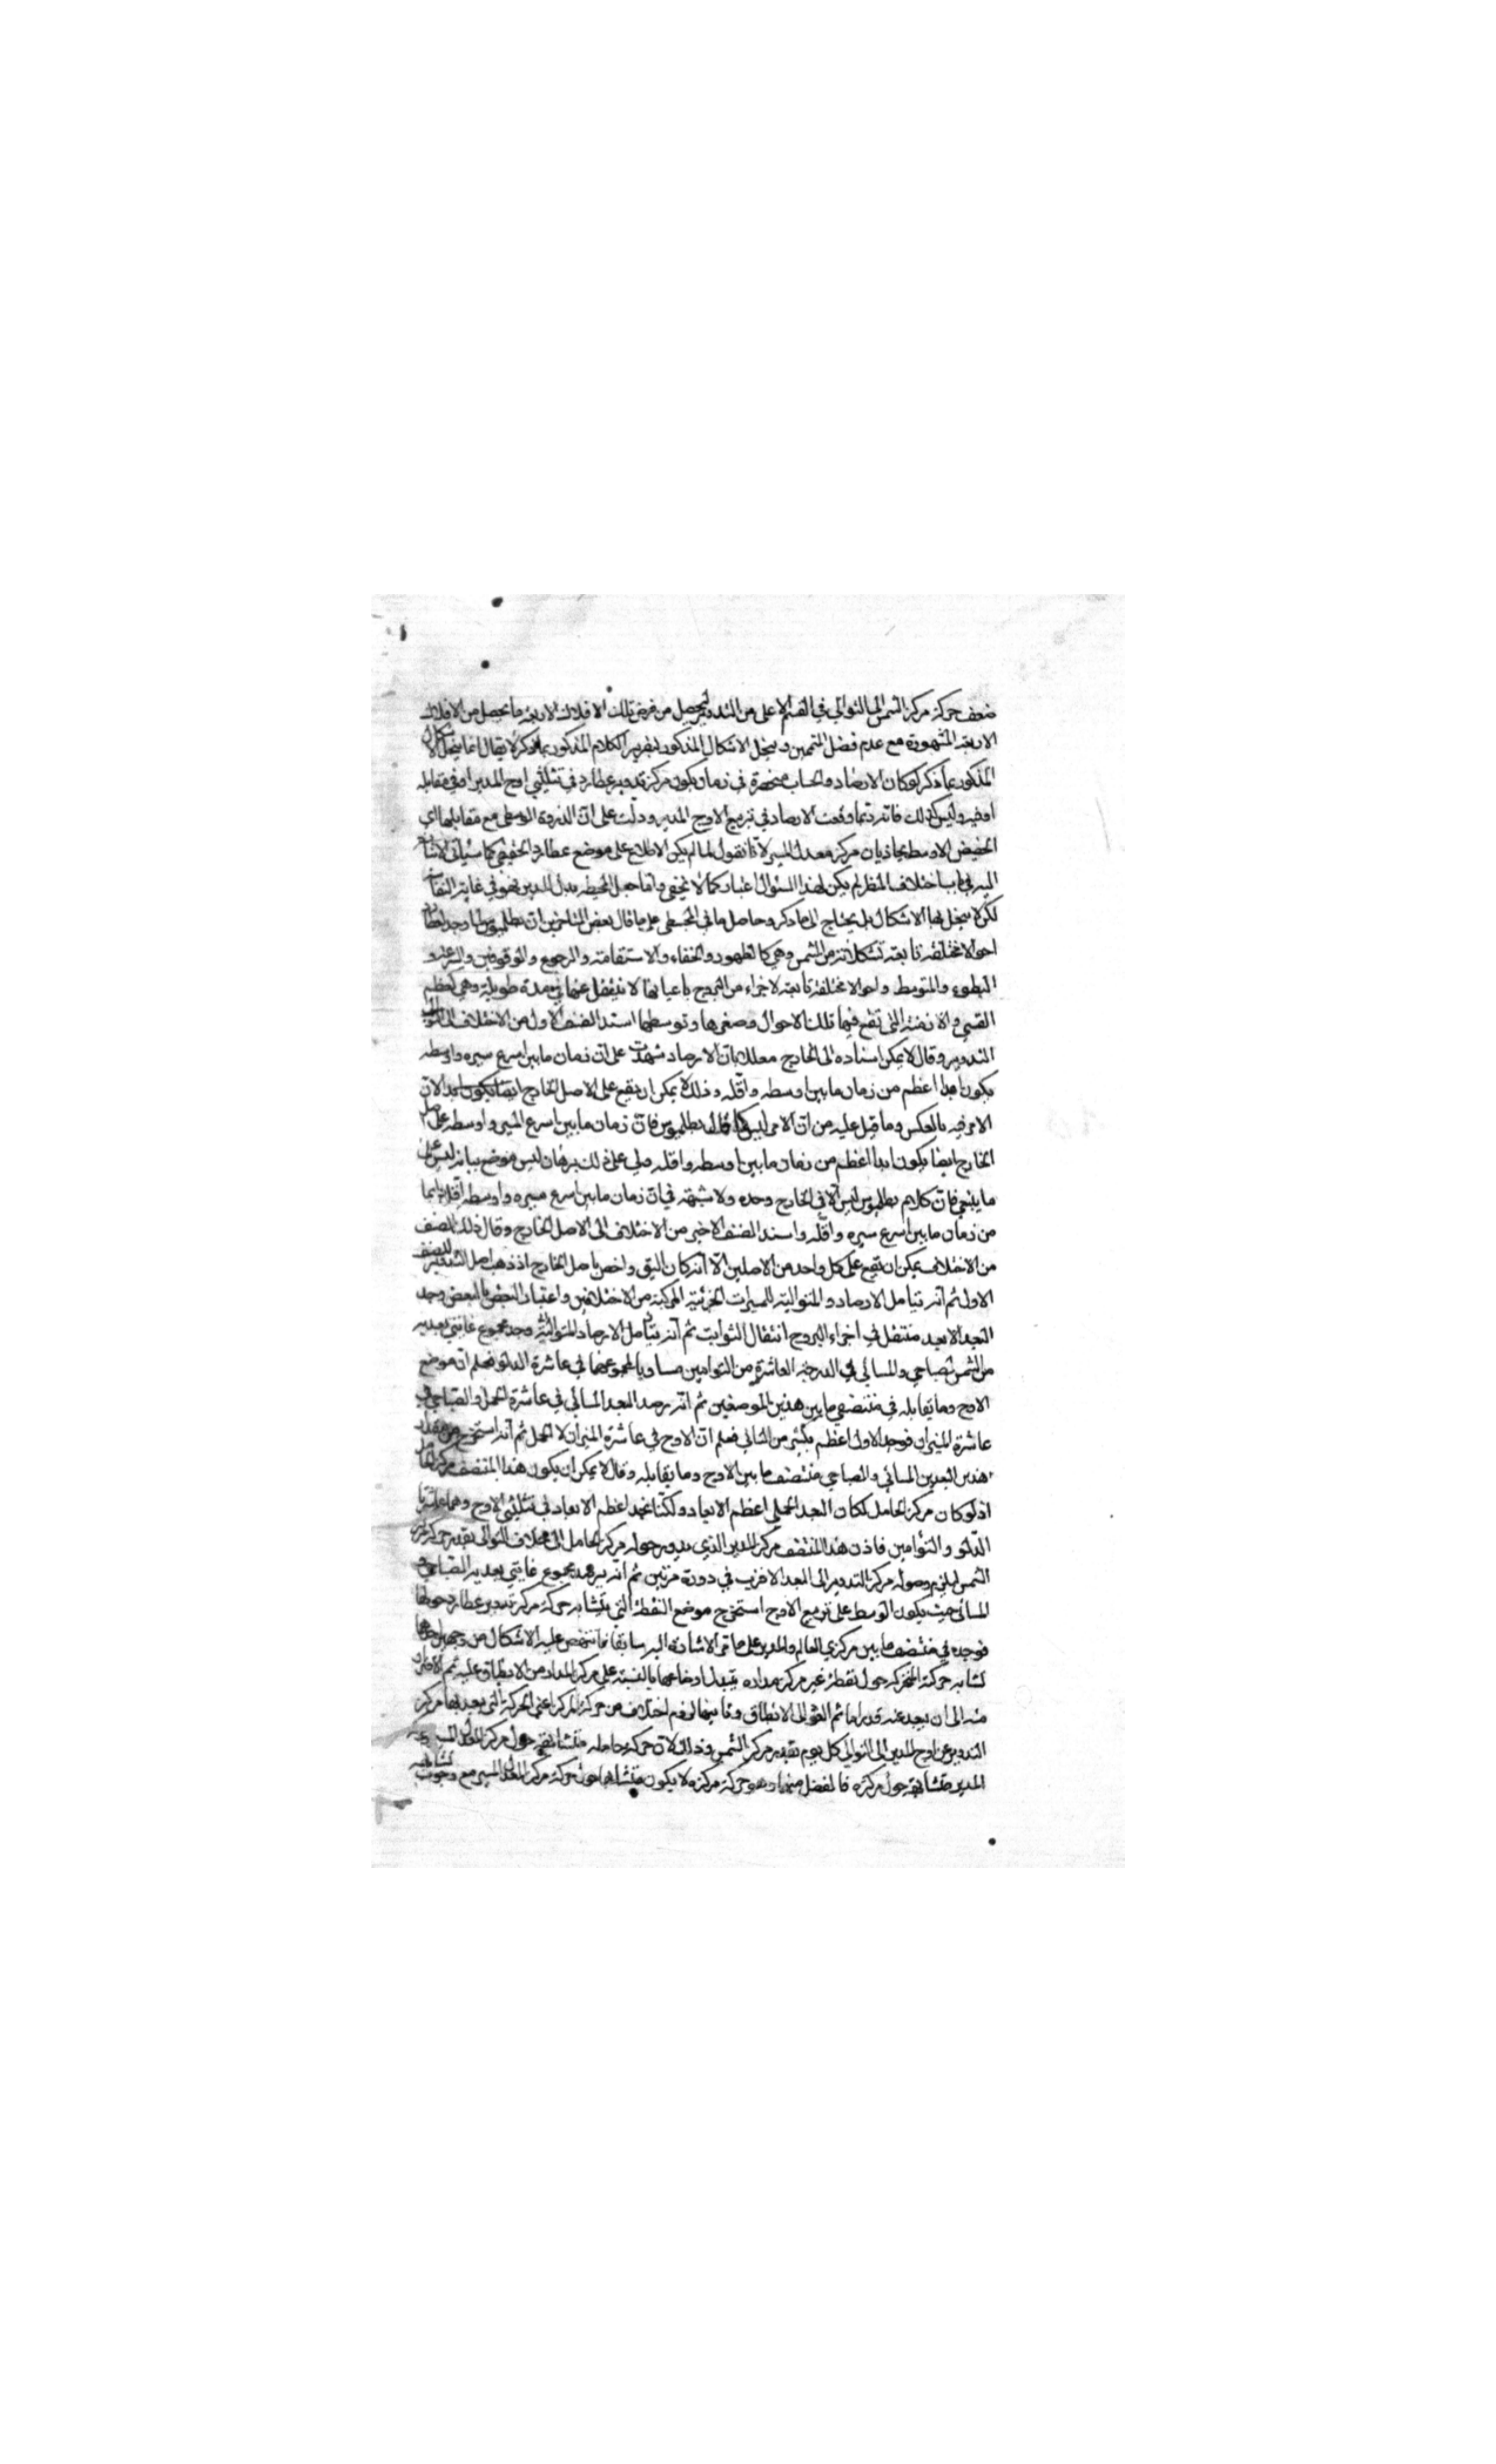 ضعف حركة مركز الشمس الى التوالي في القسم الاعلى من التدوير ليحصل من فرض تلك الافلاك الاربعة ما يحصل من الافلاك
الاربعة المشهورة مع عدم فضل المتممين وينحل الاشكال المذكور لتقرير الكلام المذكور بما ذكر لا يقال انما ينحل الاشكال
المذكور بما ذكر لو كان الارصاد والحساب منحصرة في زمان يكون مركز تدوير عطارد في تثليثي اوج المدير او في مقابله
او فيه وليس كذلك فانه ربما وقعت الارصاد في تربيع الاوج المدير ودلت على ان الذروة الوسطى مع مقابلها اي
الحضيض الاوسط يحاذيان مركز معدل المسير لانا نقول لما لم يكن الاطلاع على موضع عطارد الحقيقي كما سيأتي الاشارة
اليه في باب اختلاف المنظر لم يكن لهذا السؤال اعتبار كما لا يخفى واما جعل المحيطة بدل المدير فهو في غاية
لكن لا ينحل بها الاشكال بل يحتاج الى ما ذكر وحاصل ما في المجسطي على ما قال بعض المتاخرين ان بطلميوس لما وجد لعطارد
احوالا مختلفة تابعة لتشكلاته من الشمس وهي كالظهور والخفاء والاستقامة والرجوع والوقوفين والسرعة و
البطوء والمتوسط واحوالا مختلفة تابعة لاجزاء من البروج باعيانها لا ينتقل عنها في مدة طويلة وهي كعظم
القسي والازمنة التي تقع فيها تلك الاحوال وصغرها وتوسطها اسند الصنف الاول من الاختلاف الى
التدوير وقال لا يمكن اسناده الى الخارج معللا بان الارصاد شهدت على ان زمان ما بين اسرع سيره واوسطه
يكون ابدا اعظم من زمان ما بين اوسطه واقله وذلك لا يمكن ان يقع على الاصل الخارج لان
الامر فيه بالعكس وما قيل عليه من ان الامر ليس كما قال بطلميوس فان زمان ما بين اسرع السير واوسطه على اصل
الخارج ايضا يكون ابدا اعظم من زمان ما بين اوسطه واقله ولي على ذلك برهان ليس موضع بيانه ليس على
ما ينبغي فان كلام بطلميوس ليس الا في الخارج وحده ولا شبهة في ان زمان ما بين اسرع سيره واوسطه اقل دائما
من زمان ما بين اسرع سيره واقله واسند الصنف الاخير من الاختلاف الى الاصل الخارج وقال ذلك الصنف
من الاختلاف يمكن ان يقع على كل واحد من الاصلين الا انه كان اليق واخص باصل الخارج اذ ذهب اصل التدوير للصنف
الاول ثم انه بتامل الارصاد المتوالية للمسيرات الجزئية المركبة من الاختلافين واعتبار البعض بالبعض وجد
البعد الابعد منتقل في اجزاء البروج انتقال الثوابت ثم انه بتامل الارصاد المتوالية وجد مجموع غايتي بعديه
من الشمس الصباحي والمسائي في الدرجة العاشرة من التوامين مساويا لمجموعهما في عاشرة الدلو فعلم ان موضع
الاوج وما يقابله في منتصفي ما بين هذين الموضعين ثم انه برصد البعد المسائي في عاشرة الحمل والصباحي في
عاشرة الميزان فوجد الاول اعظم بكثير من الثاني فعلم ان الاوج في عاشرة الميزان لا الحمل ثم انه استخرج من مقدار
هذين البعدين المسائي والصباحي منتصف ما بين الاوج وما يقابله وقال لا يمكن ان يكون هذا المنتصف مركز الحامل
اذ لو كان مركز الحامل لكان البعد الحملي اعظم الابعاد ولكنا نجد اعظم الابعاد في تثليثي الاوج وهما عاشرتا
الدلو والتؤامين فاذن هذا المنتصف مركز المدير الذي يدور حوله مركز الحامل الى خلاف التوالي بقدر حركة مركز
الشمس ليلزم وصول مركز التدوير الى البعد الاقرب في دورة مرتين ثم انه برصد مجموع غايتي بعديه الصباحي و
المسائي حيث يكون الوسط على تربيع الاوج استخرج موضع النقطة التي يتشابه حركة مركز تدوير عطارد حولها
فوجده في منتصف ما بين مركزي العالم والمدير على ما مر الاشارة اليه سابقا فانتهض عليه الاشكال من وجهين احدهما
تشابه حركة المتحركة حول نقطة غير مركز مداره بتبدل اوضاعها بالنسبة على مركز المدار من الانطباق عليه ثم الافتراق
منه الى ان يبعد عنه قدر اما ثم العود الى الانطباق وثانيهما لزوم اختلاف من حركة المركز اعني الحركة التي يبعد بها مركز
التدوير عن اوج المدير الى التوالي كل يوم بقدر مركز الشمس وذلك لان حركة حامله متشابهة حول مركز معدل المسير وحركة
المدير متشابهة حول مركزه فالفضل بينهما وهو حركة مركزه لا يكون متشابها حول حركة مركز معدل المسير مع وجوب تشابهه